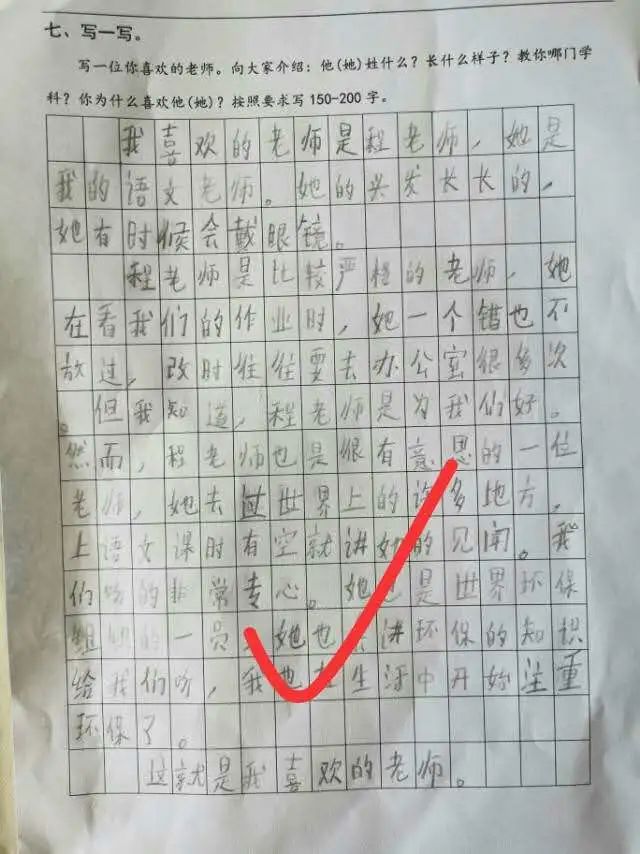 七、写一写。
写一位你喜欢的老师。向大家介绍：他(她)姓什么？长什么样子？教你哪门学
科？你为什么喜欢他(她)？按照要求写150-200字。
我喜欢的老师是程老师，她是
我的语文老师。她的头发长长的，
她有时候会戴眼镜。
程老师是比较严格的老师，她
在看我们的作业时，她一个错也不
放过，改时往往要去办公室很多次
。但我知道，程老师是为我们好。
然而，程老师也是很有意思的一位
老师，她去过世界上的许多地方，
上语文课时有空就讲她的见闻。我
们听的非常专心。她是世界环保
组织的一员，她也讲环保的知识
给我们听，我也在生活中开始注重
环保了。
这就是我喜欢的老师。